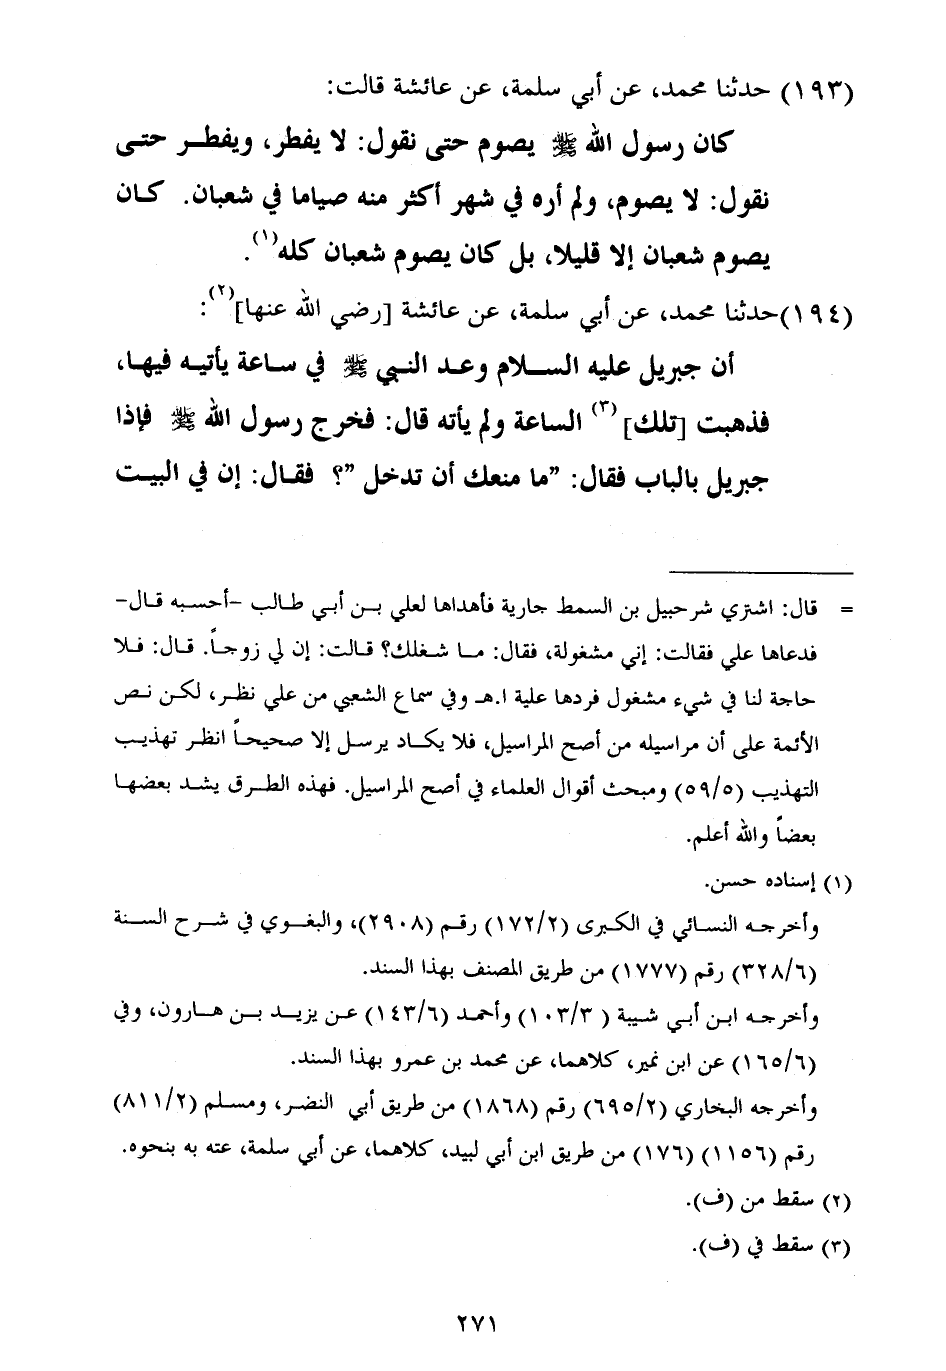 (١٩٣) حدثنا محمد، عن أبي سلمة، عن عائشة قالت:
كان رسول الله ﷺ يصوم حتى نقول: لا يفطر، ويفطر حتى
نقول: لا يصوم، ولم أره في شهر أكثر منه صياما في شعبان. كان
يصوم شعبان إلا قليلا، بل كان يصوم شعبان كله(١).
(١٩٤)حدثنا محمد، عن أبي سلمة، عن عائشة [رضي الله عنها](٢):
أن جبريل عليه السلام وعد النبي ﷺ في ساعة يأتيه فيها،
فذهبت [تلك](٣) الساعة ولم يأته قال: فخرج رسول الله ﷺ فإذا
جبريل بالباب فقال: ”ما منعك أن تدخل ”؟ فقال: إن في البيت
= قال: اشتري شرحبيل بن السمط جارية فأهداها لعلي بن أبي طالب -أحسبه قال-
فدعاها علي فقالت: إني مشغولة، فقال: ما شغلك؟ قالت: إن لي زوجاً. قال: فلا
حاجة لنا في شيء مشغول فردها علية ا.هـ وفي سماع الشعبي من علي نظر، لكن نص
الأئمة على أن مراسيله من أصح المراسيل، فلا يكاد يرسل إلا صحيحاً انظر تهذيب
التهذيب (٥٩/٥) ومبحث أقوال العلماء في أصح المراسيل. فهذه الطرق يشد بعضها
بعضاً والله أعلم.
(١) إسناده حسن.
وأخرجه النسائي في الكبرى (١٧٢/٢) رقم (٢٩٠٨)، والبغوي في شرح السنة
(٣٢٨/٦) رقم (١٧٧٧) من طريق المصنف بهذا السند.
وأخرجه ابن أبي شيبة ( ١٠٣/٣) وأحمد (١٤٣/٦) عن يزيد بن هارون، وفي
(١٦٥/٦) عن ابن نمير، كلاهما، عن محمد بن عمرو بهذا السند.
وأخرجه البخاري (٦٩٥/٢) رقم (١٨٦٨) من طريق أبي النضر، ومسلم (٨١١/٢)
رقم (١١٥٦) (١٧٦) من طريق ابن أبي لبيد، كلاهما، عن أبي سلمة، عته به بنحوه.
(٢) سقط من (ف).
(٣) سقط في (ف).
٢٧١